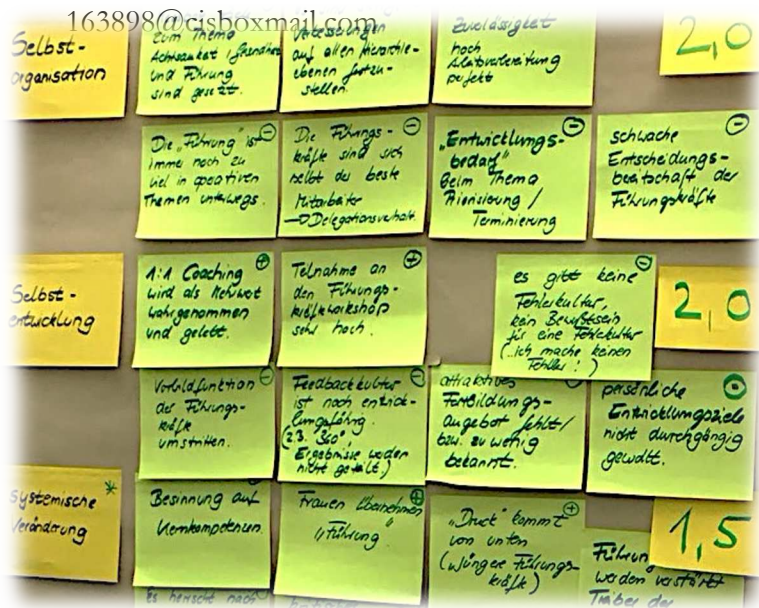 163898@cjsboxmail.com
Selbst-
organisation
zum Thema
Achtsamkeit / Gesundheit
und Führung
sind gesetzt.
Verbesserungen
auf allen Hierarchie-
ebenen festzu-
stellen.
Zuverlässigkeit
hoch
perfekt
2,0
Die „Führung" ist
immer noch zu
viel in operativen
Themen unterwegs.
Die Führungs-
kräfte sind sich
selbst der beste
Mitarbeiter
→ Delegationsverhalt.
„Entwicklungs-
bedarf"
Beim Thema
Priorisierung /
Terminierung
schwache
Entscheidungs-
bereitschaft der
Führungskräfte
Selbst-
entwicklung
1:1 Coaching
wird als Mehrwert
wahrgenommen
und gelebt.
Teilnahme an
den Führungs-
kräfteworkshops
sehr hoch.
es gibt keine
Fehlerkultur,
kein Bewußtsein
für eine Fehlerkultur
(„ich mache keinen
Fehler!")
2,0
Vorbildfunktion
der Führungs-
kräfte
umstritten.
Feedbackkultur
ist noch entwick-
lungsfähig.
(z.B. 360°
Ergebnisse werden
nicht geteilt.)
attraktives
Fortbildungs-
angebot fehlt /
bzw. zu wenig
bekannt.
persönliche
Entwicklungsziele
nicht durchgängig
gewollt.
Systemische *
Veränderung
Besinnung auf
Kernkompetenzen.
Frauen übernehmen
„Führung"
„Druck" kommt
von unten
(jüngere Führungs-
kräfte)
Führung
werden verstärkt
Treiber der
1,5
es herrscht noch